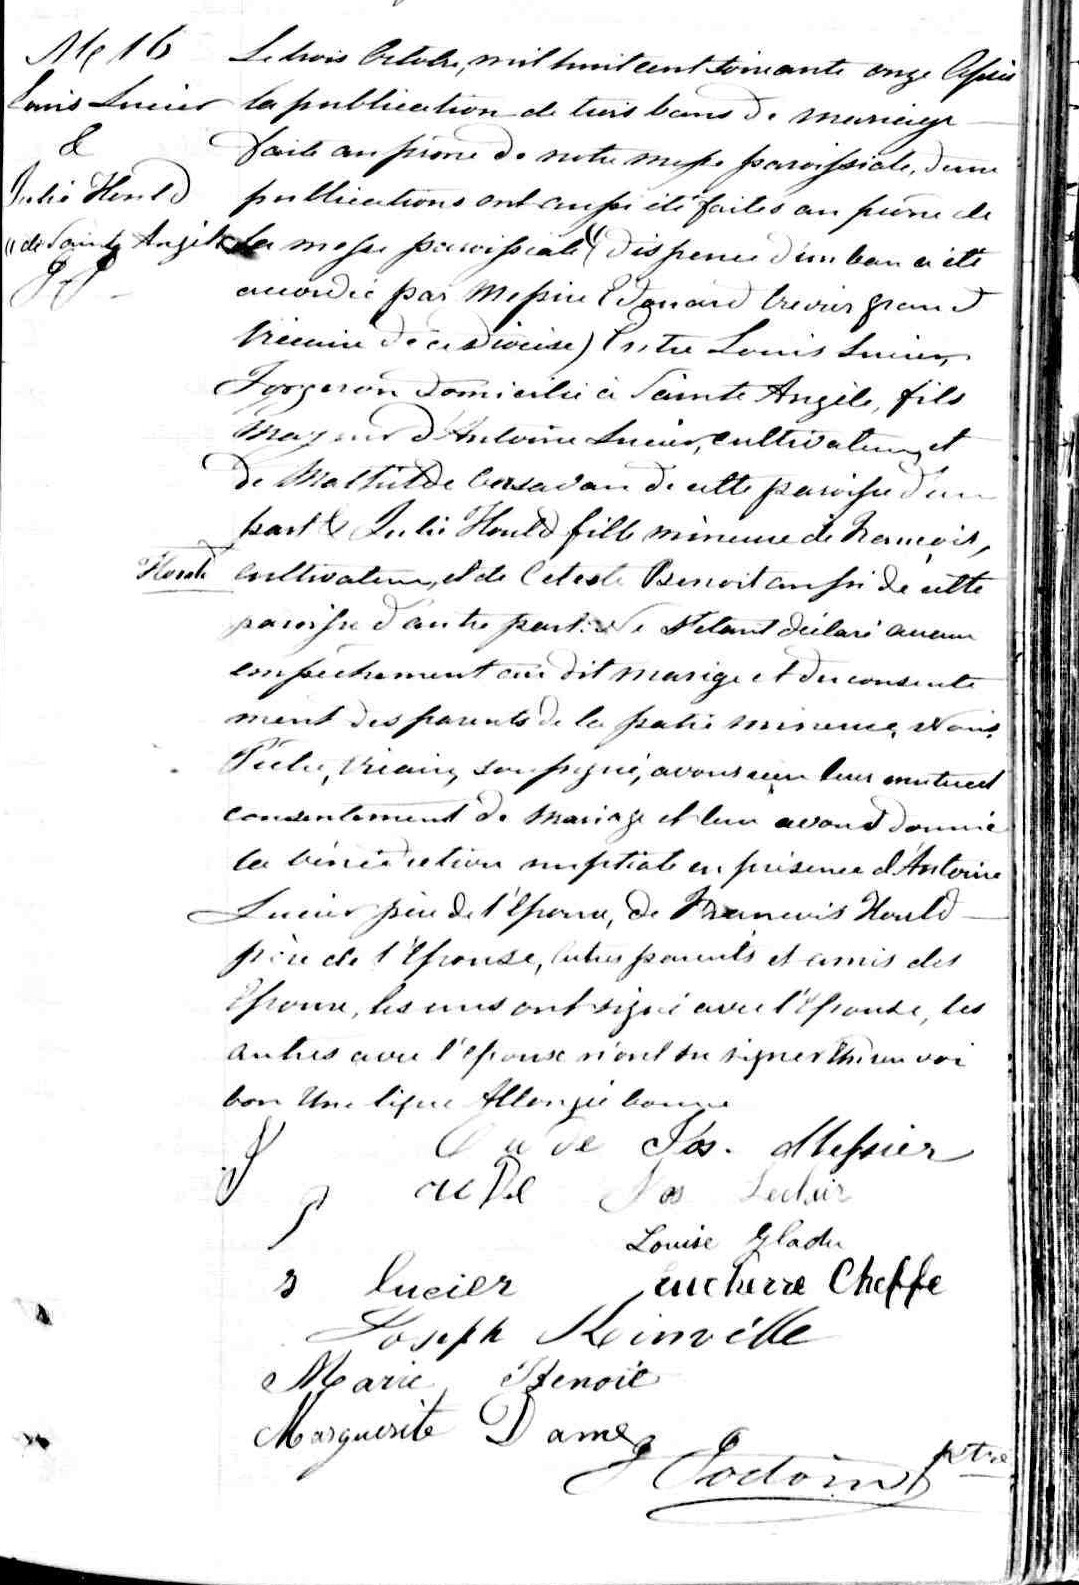 M 16
Louis Lucier
&
Julie Hould
"de Sainte Angèle
Le trois Octobre, mil huit cent soixante onze Après
la publication de trois bans de mariage
faite au prône de notre messe paroissiale, d'une
publications ont aussi été faites au prône de
la messe paroissiale (dispense d'un ban a été
accordée par Messire Edouard grand
Vicaire de ce diocèse) Entre Louis Lucier,
Forgeron domicilié à Sainte Angèle, fils
majeur d'Antoine Lucier, cultivateur, et
de Mathilde de cette paroisse d'une
part & Julie Hould fille mineure de François,
Hould
cultivateur, et de Celeste Benoit aussi de cette
paroisse d'autre part. Ne s'étant déclaré aucun
empêchement au dit marige et du consente
ment des parents de la partie mineure, Nous,
Prêtre, Vicaire, soussigné, avons reçu leur mutuel
consentement de mariage et leur avons donné
la bénédiction nuptiale en présence d'Antoine
Lucier père de l'Epoux, de Francois Hould
père de l'Epouse, autres parents et amis des
Epoux, les uns ont signé avec l'Epouse, les
autres avec l'epoux n'ont su signer Un renvoi
bon Une ligne Allongée bonne
Jos. Messier
Jos Leclair
Louise Gladu
Lucier Eucherre Cheffe
Joseph Rinvélle
Marie Benoit
Marguerite Dame
ptre